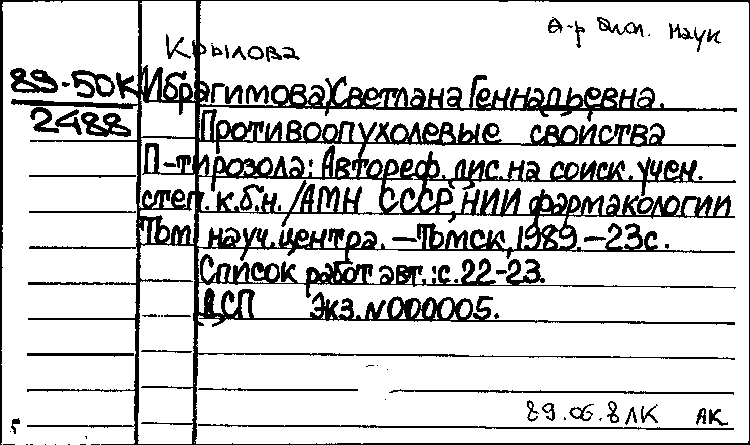 д-р биол. наук
Крылова
89-50К Ибрагимова) Светлана Геннадьевна.
2488 Противоопухолевые свойства
П-тирозола: Автореф. дис. на соиск. учен.
степ. к.б.н. /АМН СССР, НИИ фармакологии
Том. науч. центра. — Томск, 1989. — 23с.
Список работ авт.: с. 22-23.
ДСП Экз. N000005.
89.06.8 ЛК АК